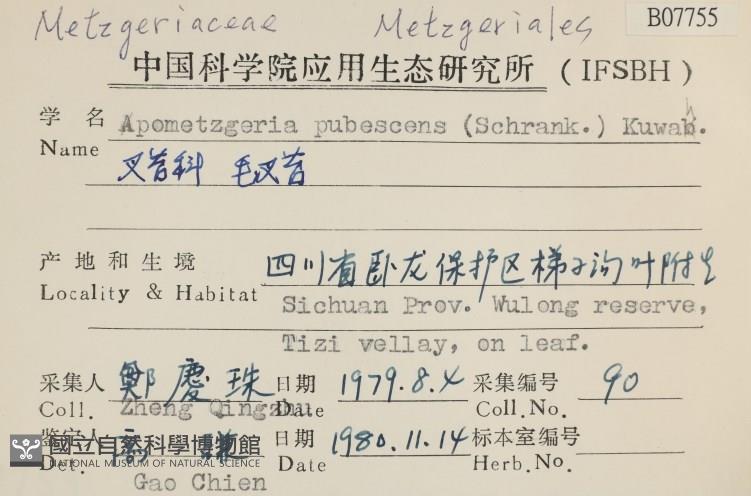 Metzgeriaceae Metzgeriales B07755
中国科学院应用生态研究所 (IFSBH)
学名 Apometzgeria pubescens (Schrank.) Kuwah.
Name
叉苔科 毛叉苔
产地和生境 四川省卧龙保护区梯子沟叶附生
Locality & Habitat Sichuan Prov. Wulong reserve,
Tizi vellay, on leaf.
采集人 鄭慶珠 日期 1979.8.4 采集编号 90
Coll. Zheng Qingzhu Date Coll.No.
鉴定人 高謙 日期 1980.11.14 标本室编号
Det. Date Herb.No.
Gao Chien
國立自然科學博物館
NATIONAL MUSEUM OF NATURAL SCIENCE